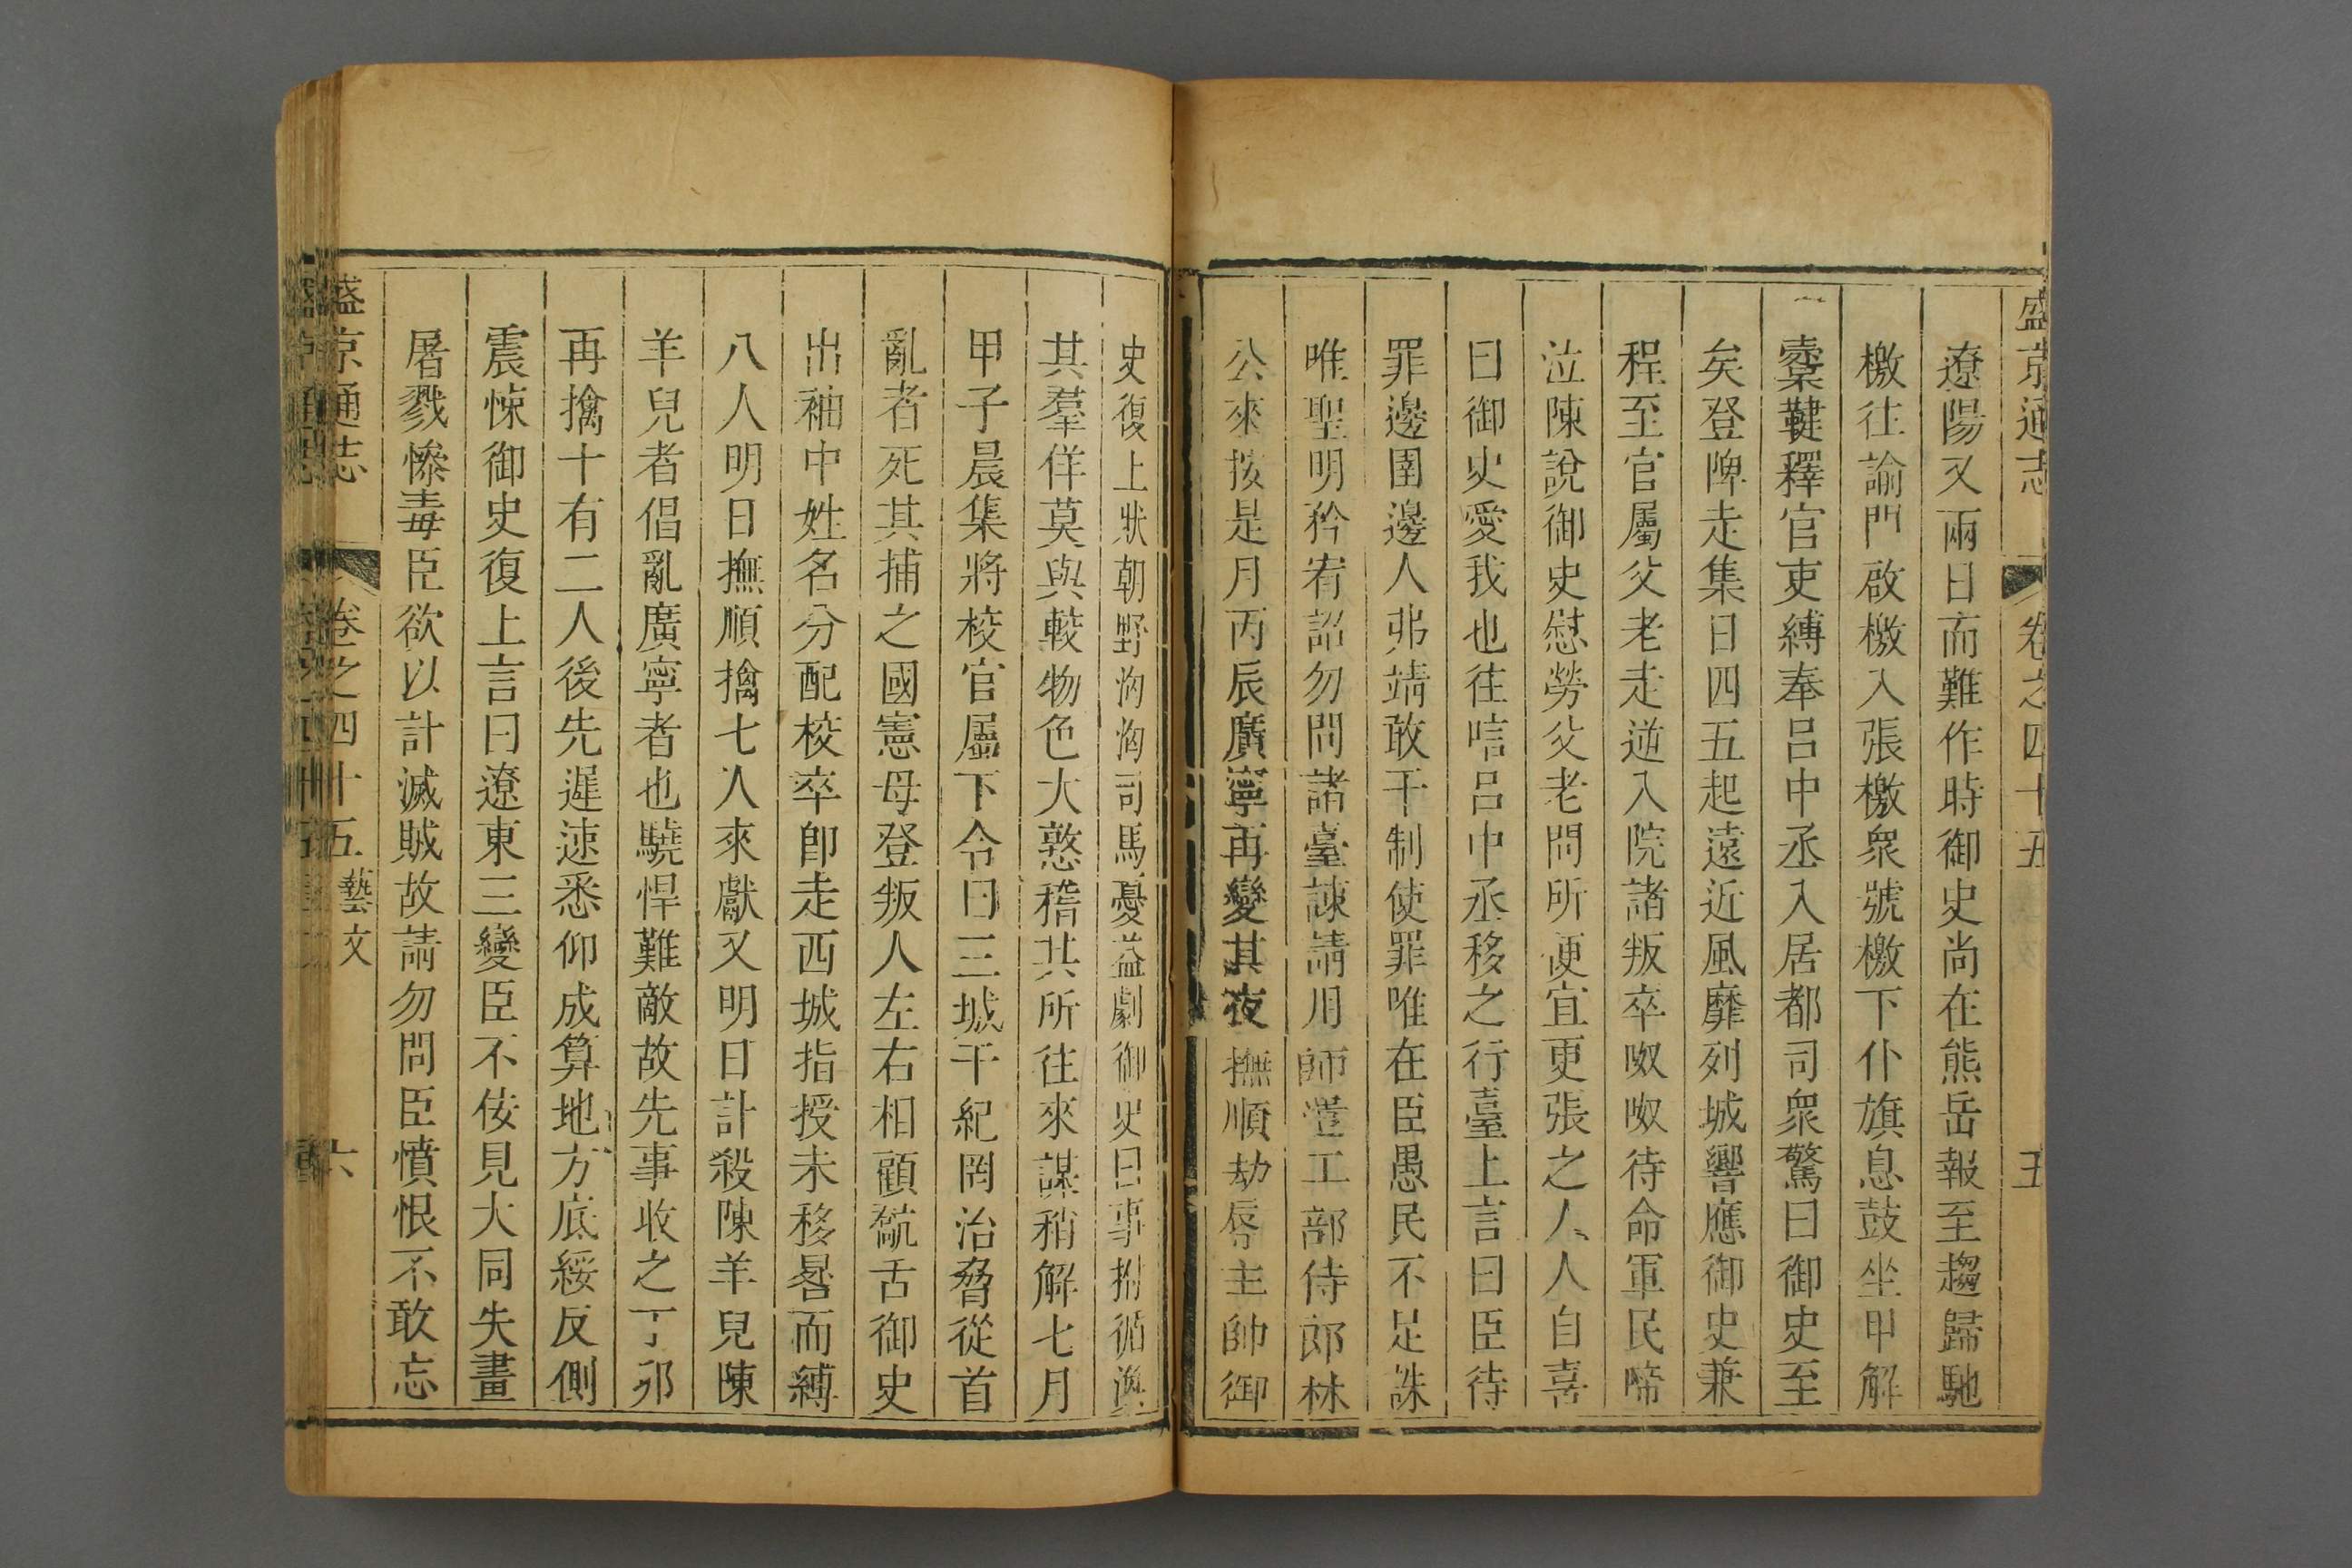 盛京通志 卷之四十五 五
遼陽又兩日而難作時御史尚在熊岳報至趨歸馳
檄往諭門啟檄入張檄衆號檄下仆旗息鼓坐甲解
櫜鞬釋官吏縛奉呂中丞入居都司衆驚曰御史至
矣登陴走集日四五起遠近風靡列城響應御史兼
程至官屬父老走逆入院諸叛卒呶呶待命軍民啼
泣陳說御史慰勞父老問所便宜更張之人人自喜
曰御史愛我也往唁呂中丞移之行臺上言曰臣待
罪邊圉邊人弗靖敢干制使罪唯在臣愚民不足誅
唯聖明矜宥詔勿問諸臺諫請用師遣工部侍郎林
公來按是月丙辰廣寧再變其夜撫順劫辱主帥御
史復上狀朝野洶洶司馬憂益劇御史曰事拊循渙
其羣佯莫與較物色大憝稽其所往來謀稍解七月
甲子晨集將校官屬下令曰三城干紀罔治脅從首
亂者死其捕之國憲毋登叛人左右相顧撟舌御史
出袖中姓名分配校卒卽走西城指授未移晷而縛
八人明日撫順擒七人來獻又明日計殺陳羊兒陳
羊兒者倡亂廣寧者也驍悍難敵故先事收之丁卯
再擒十有二人後先遲速悉仰成算地方底綏反側
震悚御史復上言曰遼東三變臣不佞見大同失畫
屠戮慘毒臣欲以計滅賊故請勿問臣憤恨不敢忘
盛京通志 卷之四十五 藝文 六